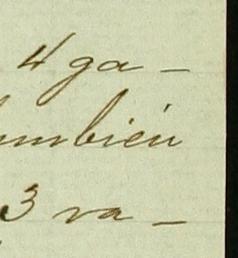 4 ga-
también
3 va-